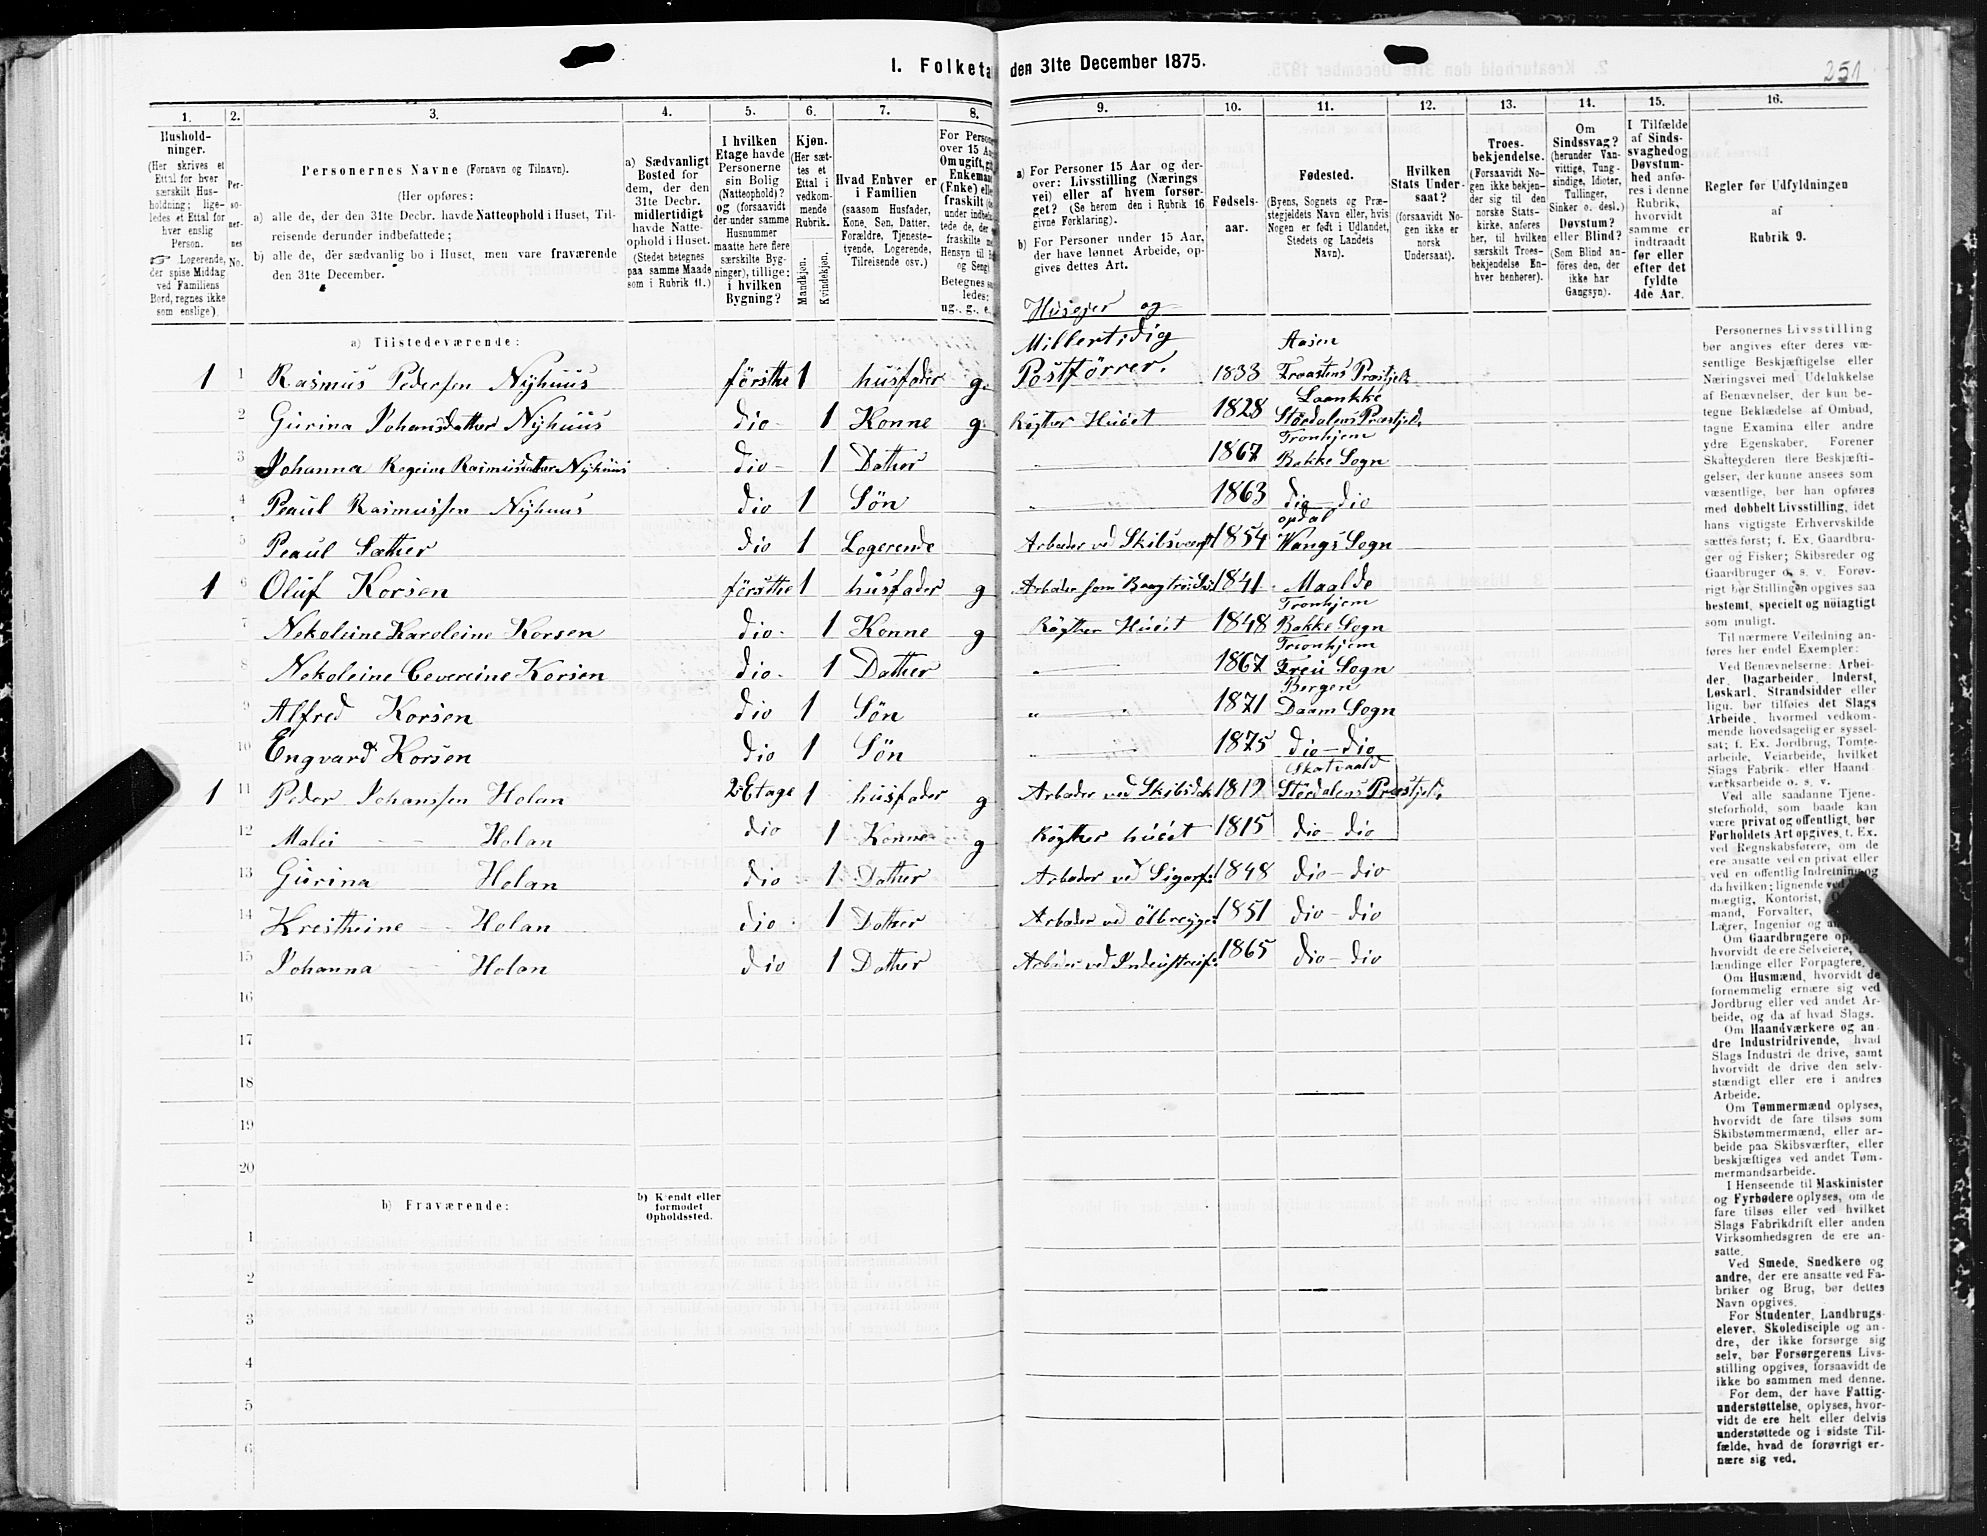 I. Folketæ den 31te December 1875.
251
1. 2. 3. 4. 5. 6. 7. 8. 9. 10. 11. 12. 13. 14. 15. 16.
Hushold-
ninger.
(Her skrives et
Ettal for hver
særskilt Hus-
holdning; lige-
ledes et Ettal for
hver enslig
Person.
☞ Logerende,
der spise Middag
ved Familiens
Bord, regnes ikke
som enslige).
Per-
so-
ner-
nes
No.
Personernes Navne (Fornavn og Tilnavn).
(Her opføres:
a) alle de, der den 31te Decbr. havde Natteophold i Huset, Til-
reisende derunder indbefattede;
b) alle de, der sædvanlig bo i Huset, men vare fraværende
den 31te December.
a) Sædvanligt
Bosted for
dem, der den
31te Decbr.
midlertidigt
havde Natte-
ophold i Huset.
(Stedet betegnes
paa samme Maade
som i Rubrik 11.)
I hvilken
Etage havde
Personerne
sin Bolig
(Natteophold)?
og (forsaavidt
der under samme
Husnummer
maatte høre flere
særskilte Byg-
ninger), tillige:
i hvilken
Bygning?
Kjøn.
(Her sæt-
tes et
Ettal i
vedkom-
mende
Rubrik.
Mandkjøn.
Kvindekjøn.
Hvad Enhver er
i Familien
(saasom Husfader,
Kone, Søn, Datter,
Forældre, Tjeneste-
tyende, Logerende,
Tilreisende osv.)
For Persone
over 15 Aa
Om ugift, gi
Enkemand
(Enke) elle
fraskilt (de
under indbe
tede de, der
fraskilte m
Hensyn til B
og Seng)
Betegnes sa
ledes:
ug., g., e.
a) For Personer 15 Aar og der-
over: Livsstilling (Nærings
vei) eller af hvem forsør-
get? (Se herom den i Rubrik 16
givne Forklaring).
b) For Personer under 15 Aar,
der have lønnet Arbeide, op-
gives dettes Art.
Fødsels-
aar.
Fødested.
(Byens, Sognets og Præ-
stegjeldets Navn eller, hvis
Nogen er født i Udlandet,
Stedets og Landets
Navn).
Hvilken
Stats Under-
saat?
(forsaavidt No-
gen ikke er
norsk
Undersaat).
Troes-
bekjendelse.
(Forsaavidt No-
gen ikke bekjen-
der sig til den
norske Stats-
kirke, anføres
her, til hvilken
særskilt Troes-
bekjendelse En-
hver henhører).
Om
Sindssvag?
(herunder Van-
vittige, Tung-
sindige, Idioter,
Tullinger,
Sinker o. desl.)
Døvstum?
eller Blind?
(Som Blind an-
føres den, der
ikke har
Gangsyn).
I Tilfælde
af Sinds-
svaghed og
Døvstum-
hed anfø-
res i denne
Rubrik,
hvorvidt
samme er
indtraadt
før eller
efter det
fyldte
4de Aar.
Regler for Udfyldningen
af
Rubrik 9.
a) Tilstedeværende:
Husejer og
Millertidig Aasen
1 1 Rasmus Pedersen Nyhuus försthe 1 husfader g. Postförrer. 1833 Fraastens Præstjeld
Laankke
2 Gurina Johansdatter Nyhuus dio 1 Konne g. Røgther Huset 1828 Stördalens Præstjeld
Tronhjem
3 Johanna Regeine Rasmusdatter Nyhuus dio 1 Dather " 1867 Bakke Sogn
4 Peaul Rasmussen Nyhuus dio 1 Søn " 1863 dio - dio
opdal
5 Peaul Sæther dio 1 Logerende Arbeder ved Skibsverft 1854 Wangs Sogn
1 6 Oluf Korsen försthe 1 husfader g 1841 Maalde
Tronhjem
7 Nekoleine Karoleine Korsen dio 1 Konne g Røgther Huset 1848 Bakke Sogn
Tronhjem
8 Nekoleine Severeine Korsen dio 1 Dather " 1867 Sogn
Bergen
9 Alfred Korsen dio 1 Søn " " 1871 Daam Sogn
10 Engvard Korsen dio 1 Søn " 1875 dio - dio
Skatvaald
1 11 Peder Johanssen Holan 2 Etage 1 husfader g 1819 Stördalens Præstjeld
12 Malei — Holan dio 1 Konne g Røgther huset 1815 dio - dio
13 Gurina — Holan dio 1 Dather Arbeder ved Sigarf: 1848 dio - dio
14 Krestheine — Holan dio 1 Dather Arbeder ved ölbrøgge 1851 dio - dio
15 Johanna — Holan dio 1 Dather Arbeder ved Indeustreif: 1865 dio - dio
16
17
18
19
20
b) Fraværende:
b) Kjendt eller
formodet
Opholdssted.
1
2
3
4
5
6
Personernes Livsstilling
bør angives efter deres væ-
sentlige Beskjæftigelse eller
Næringsvei med Udelukkelse
af Benævnelser, der kun be-
tegne Beklædelse af Ombud,
tagne Examina eller andre
ydre Egenskaber. Forener
Skatteyderen flere Beskjæfti-
gelser, der kunne ansees som
væsentlige, bør han opføres
med dobbelt Livsstilling, idet
hans vigtigste Erhvervskilde
sættes først; f. Ex. Gaardbru-
ger og Fisker; Skibsreder og
Gaardbruger o. s. v. Forøv-
rigt bør Stillingen opgives saa
bestemt, specielt og nöiagtigt
som muligt.
Til nærmere Veiledning an-
føres her endel Exempler:
Ved Benævnelserne: Arbei-
der, Dagarbeider, Inderst,
Løskarl, Strandsidder eller
lign. bør tilføies det Slags
Arbeide, hvormed vedkom-
mende hovedsagelig er syssel-
sat; f. Ex. Jordbrug, Tomte-
arbeide, Veiarbeide, hvilket
Slags Fabrik- eller Haand-
værksarbeide o. s. v.
Ved alle saadanne Tjene-
steforhold, som baade kan
være privat og offentligt, bør
Forholdets Art opgives, t. Ex.
ved Regnskabsførere, om de
ere ansatte ved en privat eller
ved en offentlig Indretning og
da hvilken; lignende ved
mægtig, Kontorist,
mand, Forvalter,
Lærer, Ingeniør og
Om Gaardbrugere
hvorvidt de ere Selveiere,
lændinge eller Forpagtere.
Om Husmænd, hvorvidt de
fornemmelig ernære sig ved
Jordbrug eller ved andet Ar-
beide, og da af hvad Slags.
Om Haandværkere og an-
dre Industridrivende, hvad
Slags Industri de drive, samt
hvorvidt de drive den selv-
stændigt eller ere i andres
Arbeide.
Om Tømmermænd oplyses,
hvorvidt de fare tilsøs som
Skibstømmermænd, eller ar-
beide paa Skibsværfter, eller
beskjæftiges ved andet Tøm-
mermandsarbeide.
I Henseende til Maskinister
og Fyrbødere oplyses, om de
fare tilsøs eller ved hvilket
Slags Fabrikdrift eller anden
Virksomhedsgren de ere an-
satte.
Ved Smede, Snedkere og
andre, der ere ansatte ved Fa-
briker og Brug, bør dettes
Navn opgives.
For Studenter, Landbrugs-
elever, Skoledisciple og an-
dre, der ikke forsørge sig
selv, bør Forsørgerens Livs-
stilling opgives, forsaavidt de
ikke bo sammen med denne.
For dem, der have Fattig-
understøttelse, oplyses, hvor-
vidt de ere helt eller delvis
understøttede og i sidste Til-
fælde, hvad de forøvrigt er-
nære sig ved.